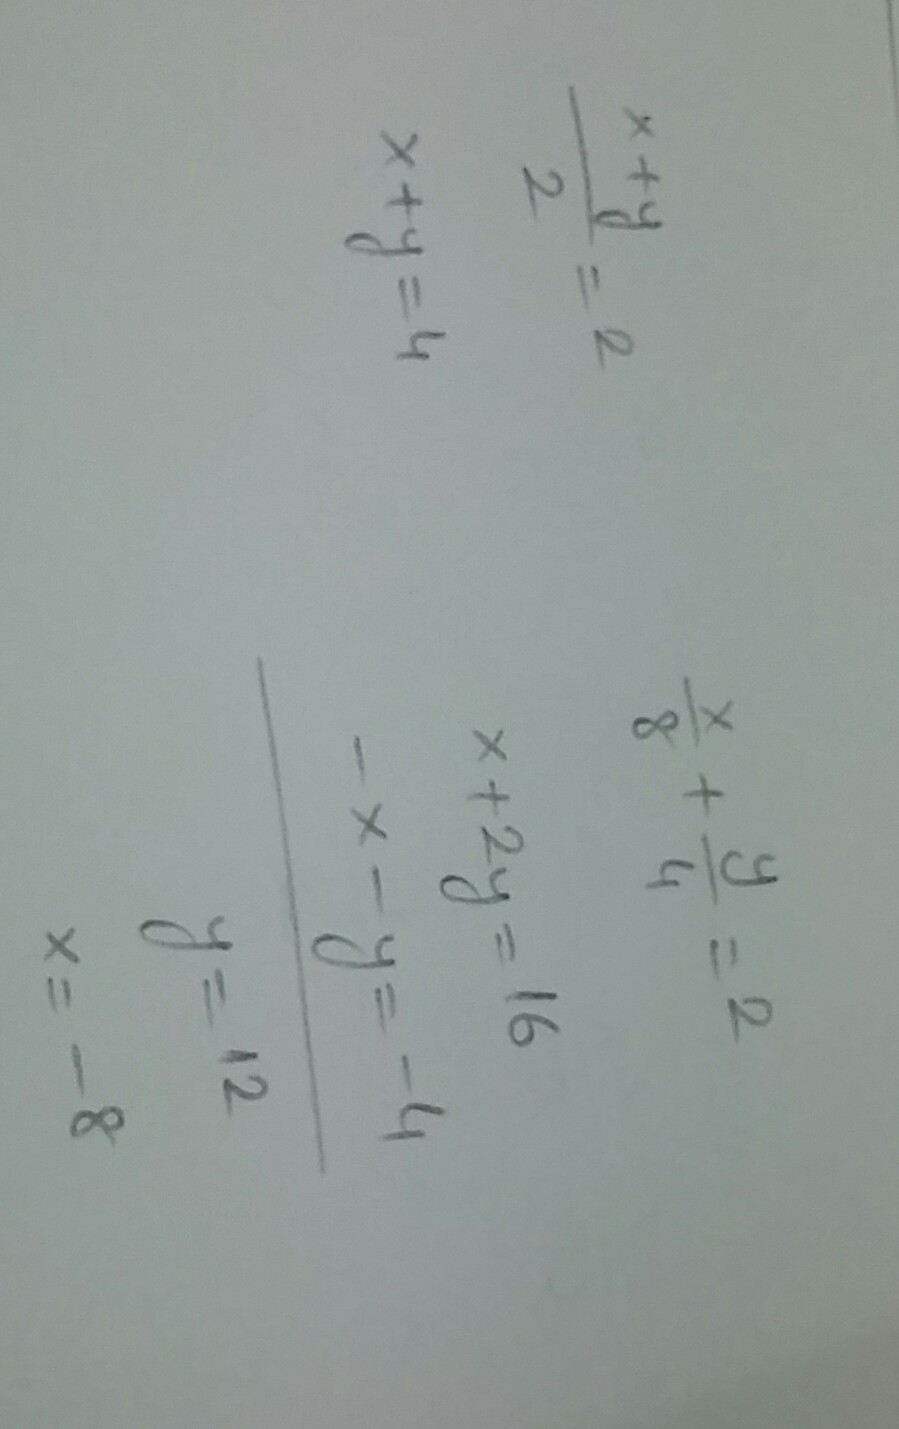 x+y/2 = 2
x+y=4
x/8 + y/4 = 2
x+2y=16
-x-y=-4
y=12
x=-8